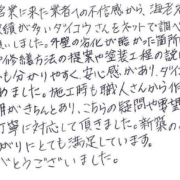 営業に来た業者への不信感から、海老名
実績が多いダイコウさんをネットで調べ
いしました。外壁の劣化が酷かった箇所
や修繕方法の提案や塗装工程の説
も分かりやすく、安心感があり、ダイ
めました。施工時も職人さんから作
明がきちんとあり、こちらの疑問や要望
丁寧に対応して頂きました。新築の
がりにとても満足しています。
がとうございました。